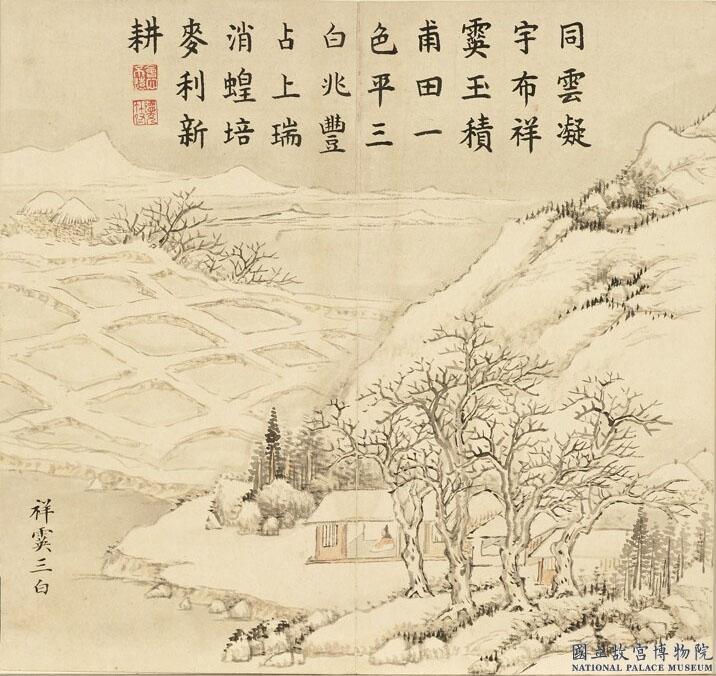 同雲凝
宇布祥
霙玉積
甫田一
色平三
白兆豐
占上瑞
消蝗培
麥利新
耕
祥霙三白
國立故宮博物院
NATIONAL PALACE MUSEUM